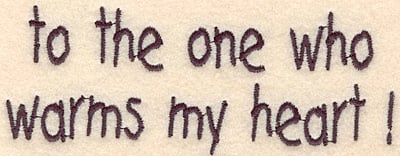 to the one who
warms my heart !